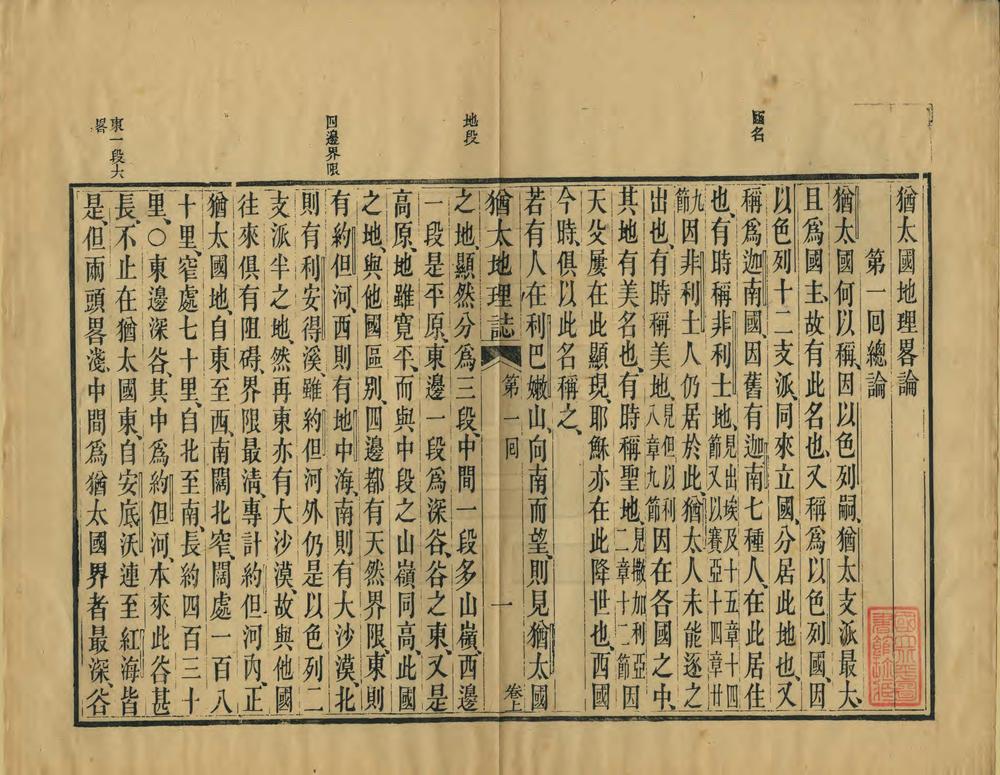 國名
地段
四邊界限
東一段大
畧
猶太國地理畧論
第一回總論
猶太國何以稱、因以色列嗣、猶太支派最大、
且爲國主、故有此名也、又稱爲以色列國、因
以色列十二支派、同來立國、分居此地也、又
稱爲迦南國、因舊有迦南七種人、在此居住
也、有時稱非利士地、見出埃及十五章十四節又以賽亞十四章廿
九節因非利士人仍居於此、猶太人未能逐之
出也、有時稱美地、見但以利八章九節因在各國之中、
其地有美名也、有時稱聖地、見撒加利亞二章十二節因
天父屢在此顯現、耶穌亦在此降世也、西國
今時、俱以此名稱之、
若有人在利巴嫩山、向南而望、則見猶太國
猶太地理誌 第一回 一 卷上
之地、顯然分爲三段、中間一段多山嶺、西邊
一段是平原、東邊一段爲深谷、谷之東、又是
高原、地雖寬平、而與中段之山嶺同高、此國
之地、與他國區别、四邊都有天然界限、東則
有約但河、西則有地中海、南則有大沙漠、北
則有利安得溪、雖約但河外仍是以色列二
支派半之地、然再東亦有大沙漠、故與他國
往來俱有阻碍、界限最清、專計約但河內、正
猶太國地、自東至西、南闊北窄、闊處一百八
十里、窄處七十里、自北至南、長約四百三十
里、○東邊深谷、其中爲約但河、本來此谷甚
長、不止在猶太國東、自安底沃連至紅海皆
是、但兩頭畧淺、中間爲猶太國界者最深、谷